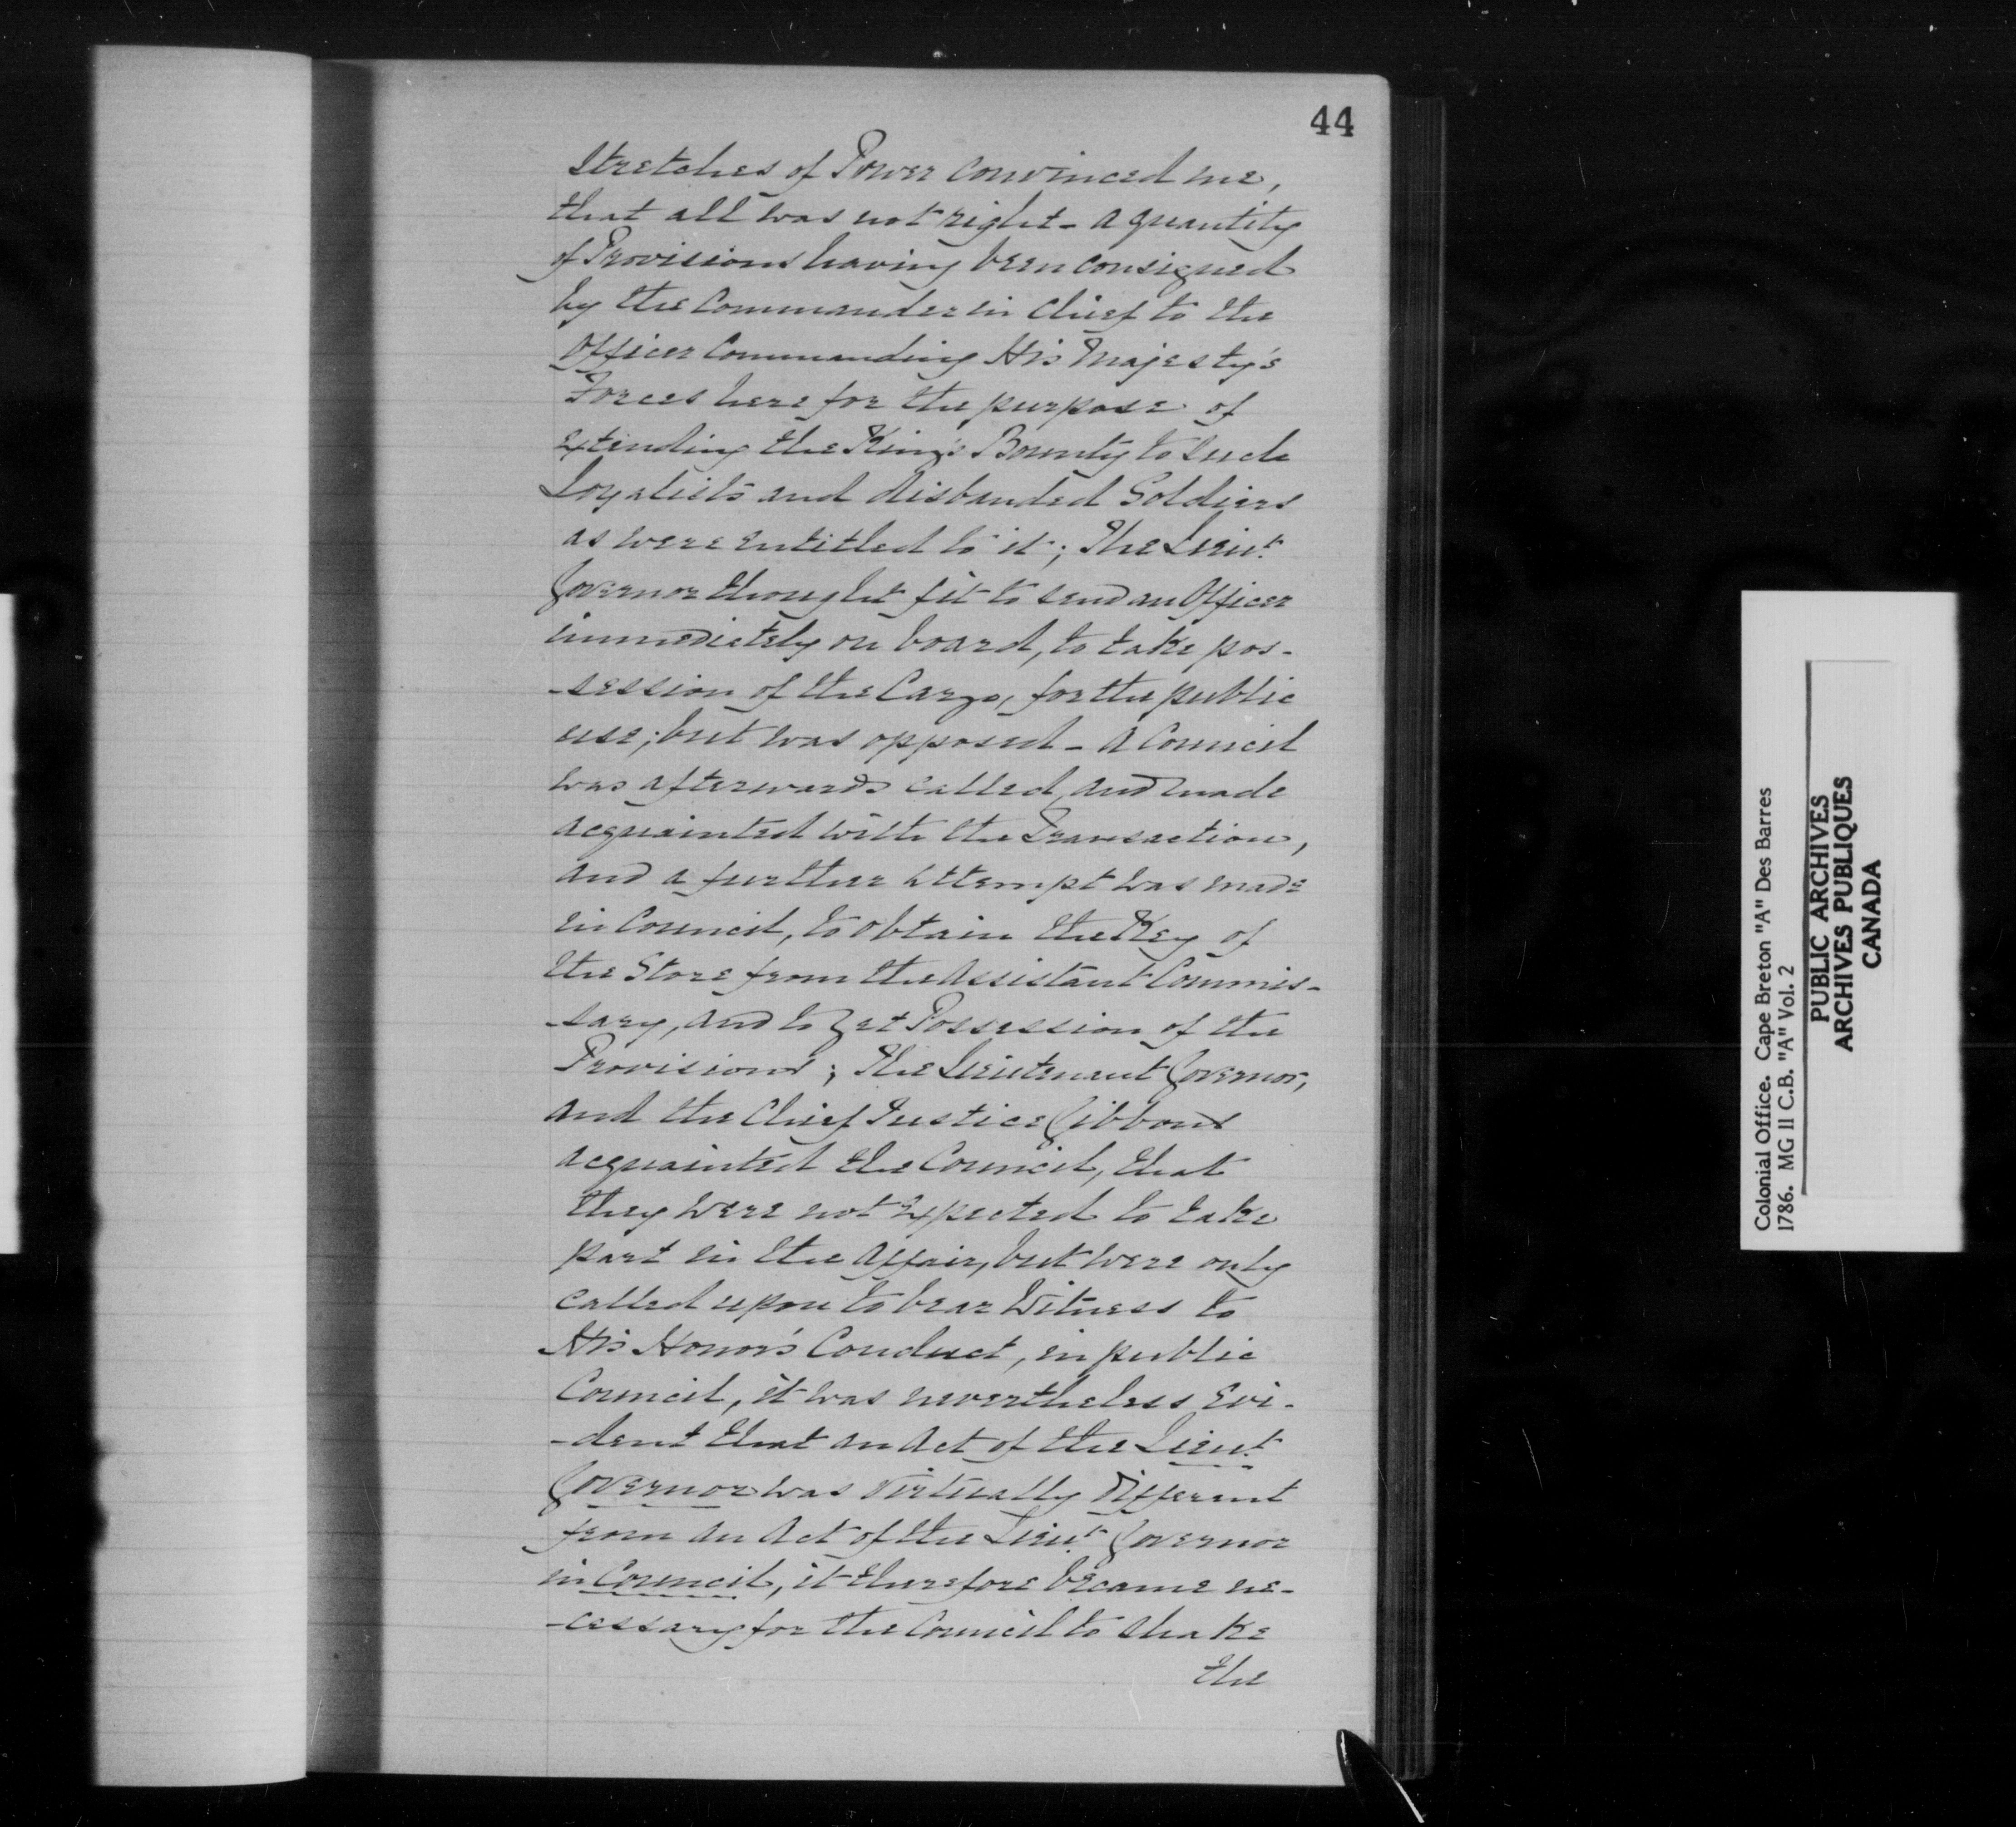 44
Stretches of Power convinced me,
that all was not right - a quantity
of Provisions having been consigned
by the Commander in Chief to the
Officer Commanding His Majesty's
Forces here for the purpose of
extending the King's Bounty to such
Loyalists and disbanded Soldiers
as were entitled to it; The Lieut.
Governor thought fit to send an Officer
immediately on board, to take pos-
-session of the Cargo, for the public
use; but was opposed - A Council
was afterwards called, and made
acquainted with the Transaction,
and a further attempt was made
in Council, to obtain the Key of
the Store from the Assistant Commis-
-sary, and to get Possession of the
Provisions; The Lieutenant Governor,
and the Chief Justice Gibbons
acquainted the Council, that
they were not expected to take
part in the Affair, but were only
called upon to bear Witness to
His Honor's Conduct, in public
Council, it was nevertheless evi-
-dent that an Act of the Lieut.
Governor was virtually different
from an Act of the Lieut. Governor
in Council, it therefore became ne-
-cessary for the Council to shake
the
Colonial Office. Cape Breton "A" Des Barres
1786. MG 11 C.B. "A" Vol. 2
PUBLIC ARCHIVES
ARCHIVES PUBLIQUES
CANADA